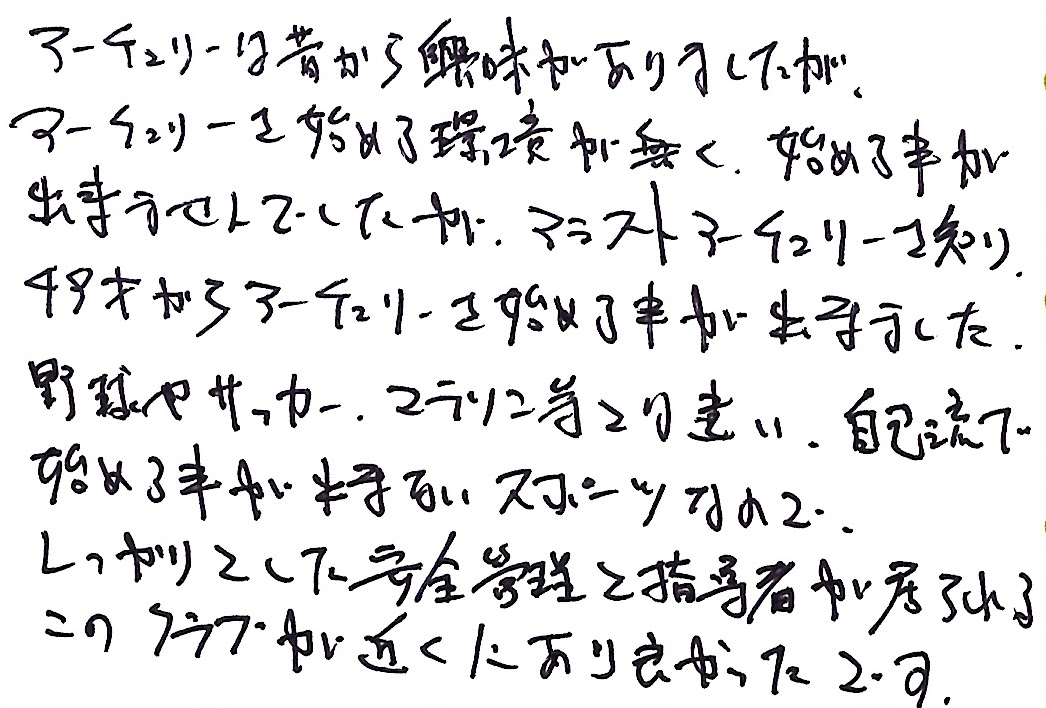 アーチェリーは昔から興味がありましたが、
アーチェリーを始める環境が無く、始める事が
出来ませんでしたが、アシストアーチェリーを知り、
49才からアーチェリーを始める事が出来ました。
野球やサッカー、マラソン等とは違い、自己流で
始める事が出来ないスポーツなので、
しっかりとした安全管理と指導者が居られる
このクラブが近くにあり良かったです。